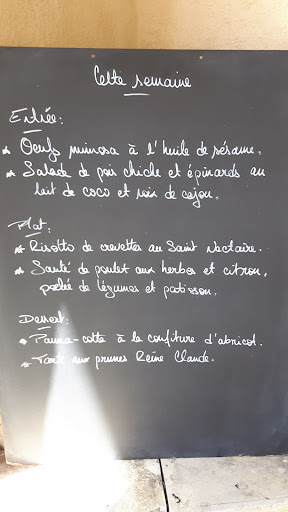 Cette semaine
Entrée:
* Oeufs mimosa à l'huile de sésame.
* Salade de pois chiche et épinards au
lait de coco et noix de cajou.
Plat:
* Risotto de crevettes au Saint Nectaire.
* Sauté de poulet aux herbes et citron,
poêlée de légumes et patisson.
Dessert:
* Panna-cotta à la confiture d'abricot.
* Tarte aux prunes Reine Claude.